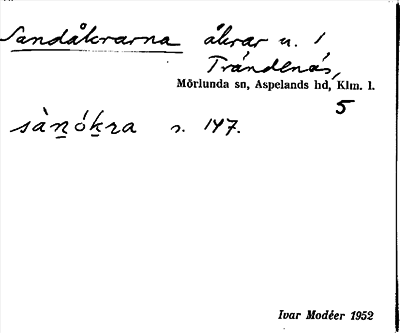 Sandåkrarna åkrar u. 1,
Trándenäs,
Mörlunda sn, Aspelands hd, Klm. l.
5
sàṉóḵra s. 147.
Ivar Modéer 1952